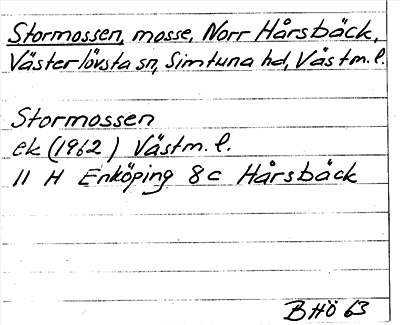 Stormossen, mosse, Norr Hårsbäck,
Västerlövsta sn, Simtuna hd, Västm.l.
Stormossen
ek (1962) Västm. l.
11 H Enköping 8c Hårsbäck
BHÖ 63